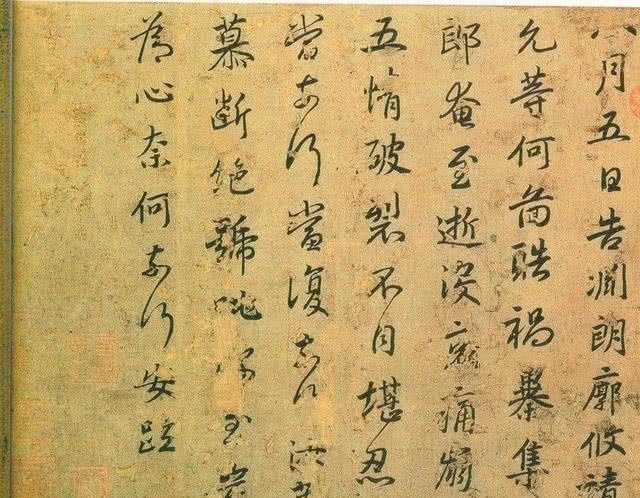 八月五日告淵朗廓攸靖
允等何圖酷禍暴集
郎奄至逝沒哀痛崩
五情破裂不自堪忍
當奈何當復奈何汝
慕斷絕號咷深至豈
為心奈何奈何安疏